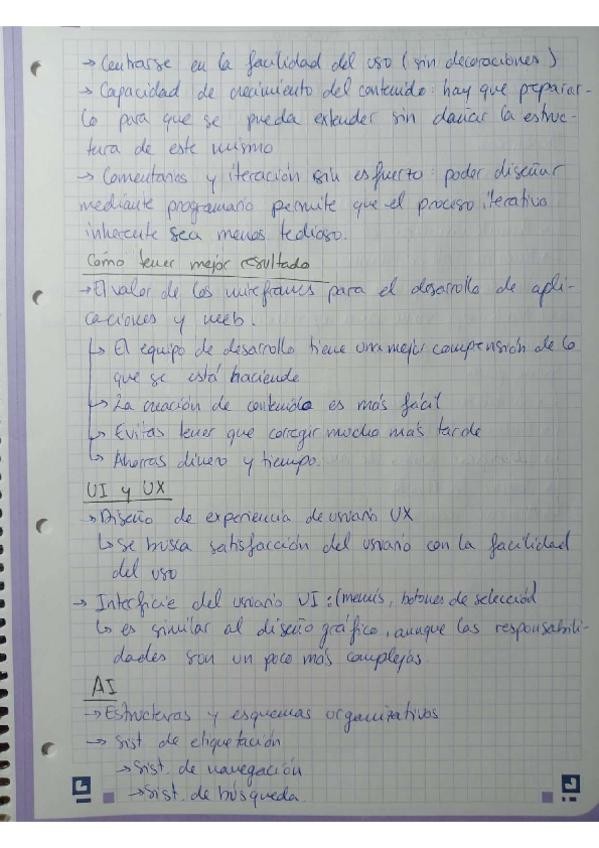 → Centrarse en la facilidad del uso (sin decoraciones)
→ Capacidad de crecimiento del contenido: hay que preparar-
lo para que se pueda extender sin dañar la estruc-
tura de este mismo
→ Comentarios y iteración sin esfuerzo: poder diseñar
mediante programario permite que el proceso iterativo
inherente sea menos tedioso.
Como tener mejor resultado
→ El valor de los wireframes para el desarrollo de apli-
caciones y web.
↳ El equipo de desarrollo tiene una mejor comprensión de lo
que se está haciendo
↳ La creación de contenido es más fácil
↳ Evitas tener que corregir mucho más tarde
↳ Ahorras dinero y tiempo.
UI y UX
→ Diseño de experiencia de usuario UX
↳ se busca satisfacción del usuario con la facilidad
del uso
→ Interficie del usuario UI: (menús, botones de selección)
↳ es similar al diseño gráfico, aunque las responsabili-
dades son un poco más complejas.
AI
→ Estructuras y esquemas organizativos
→ Sist de etiquetación
→ Sist. de navegación
→ Sist. de búsqueda